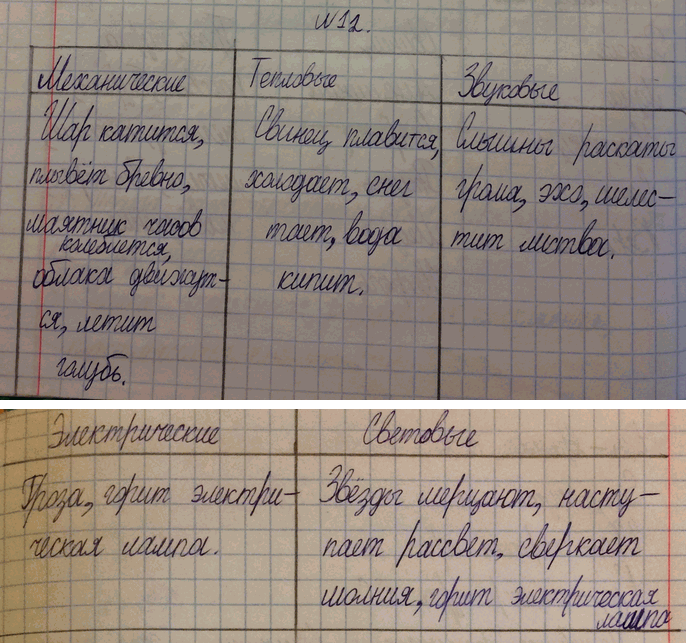 №12.
Механические Тепловые Звуковые
Шар катится, Свинец плавится, Слышны раскаты
плывёт бревно, холодает, снег грома, эхо, шелес-
маятник часов тает, вода тит листва.
колеблется,
облака движут- кипит.
ся, летит
голубь.
Электрические Световые
Гроза, горит электри- Звёзды мерцают, насту-
ческая лампа. пает рассвет, сверкает
молния, горит электрическая
лампа